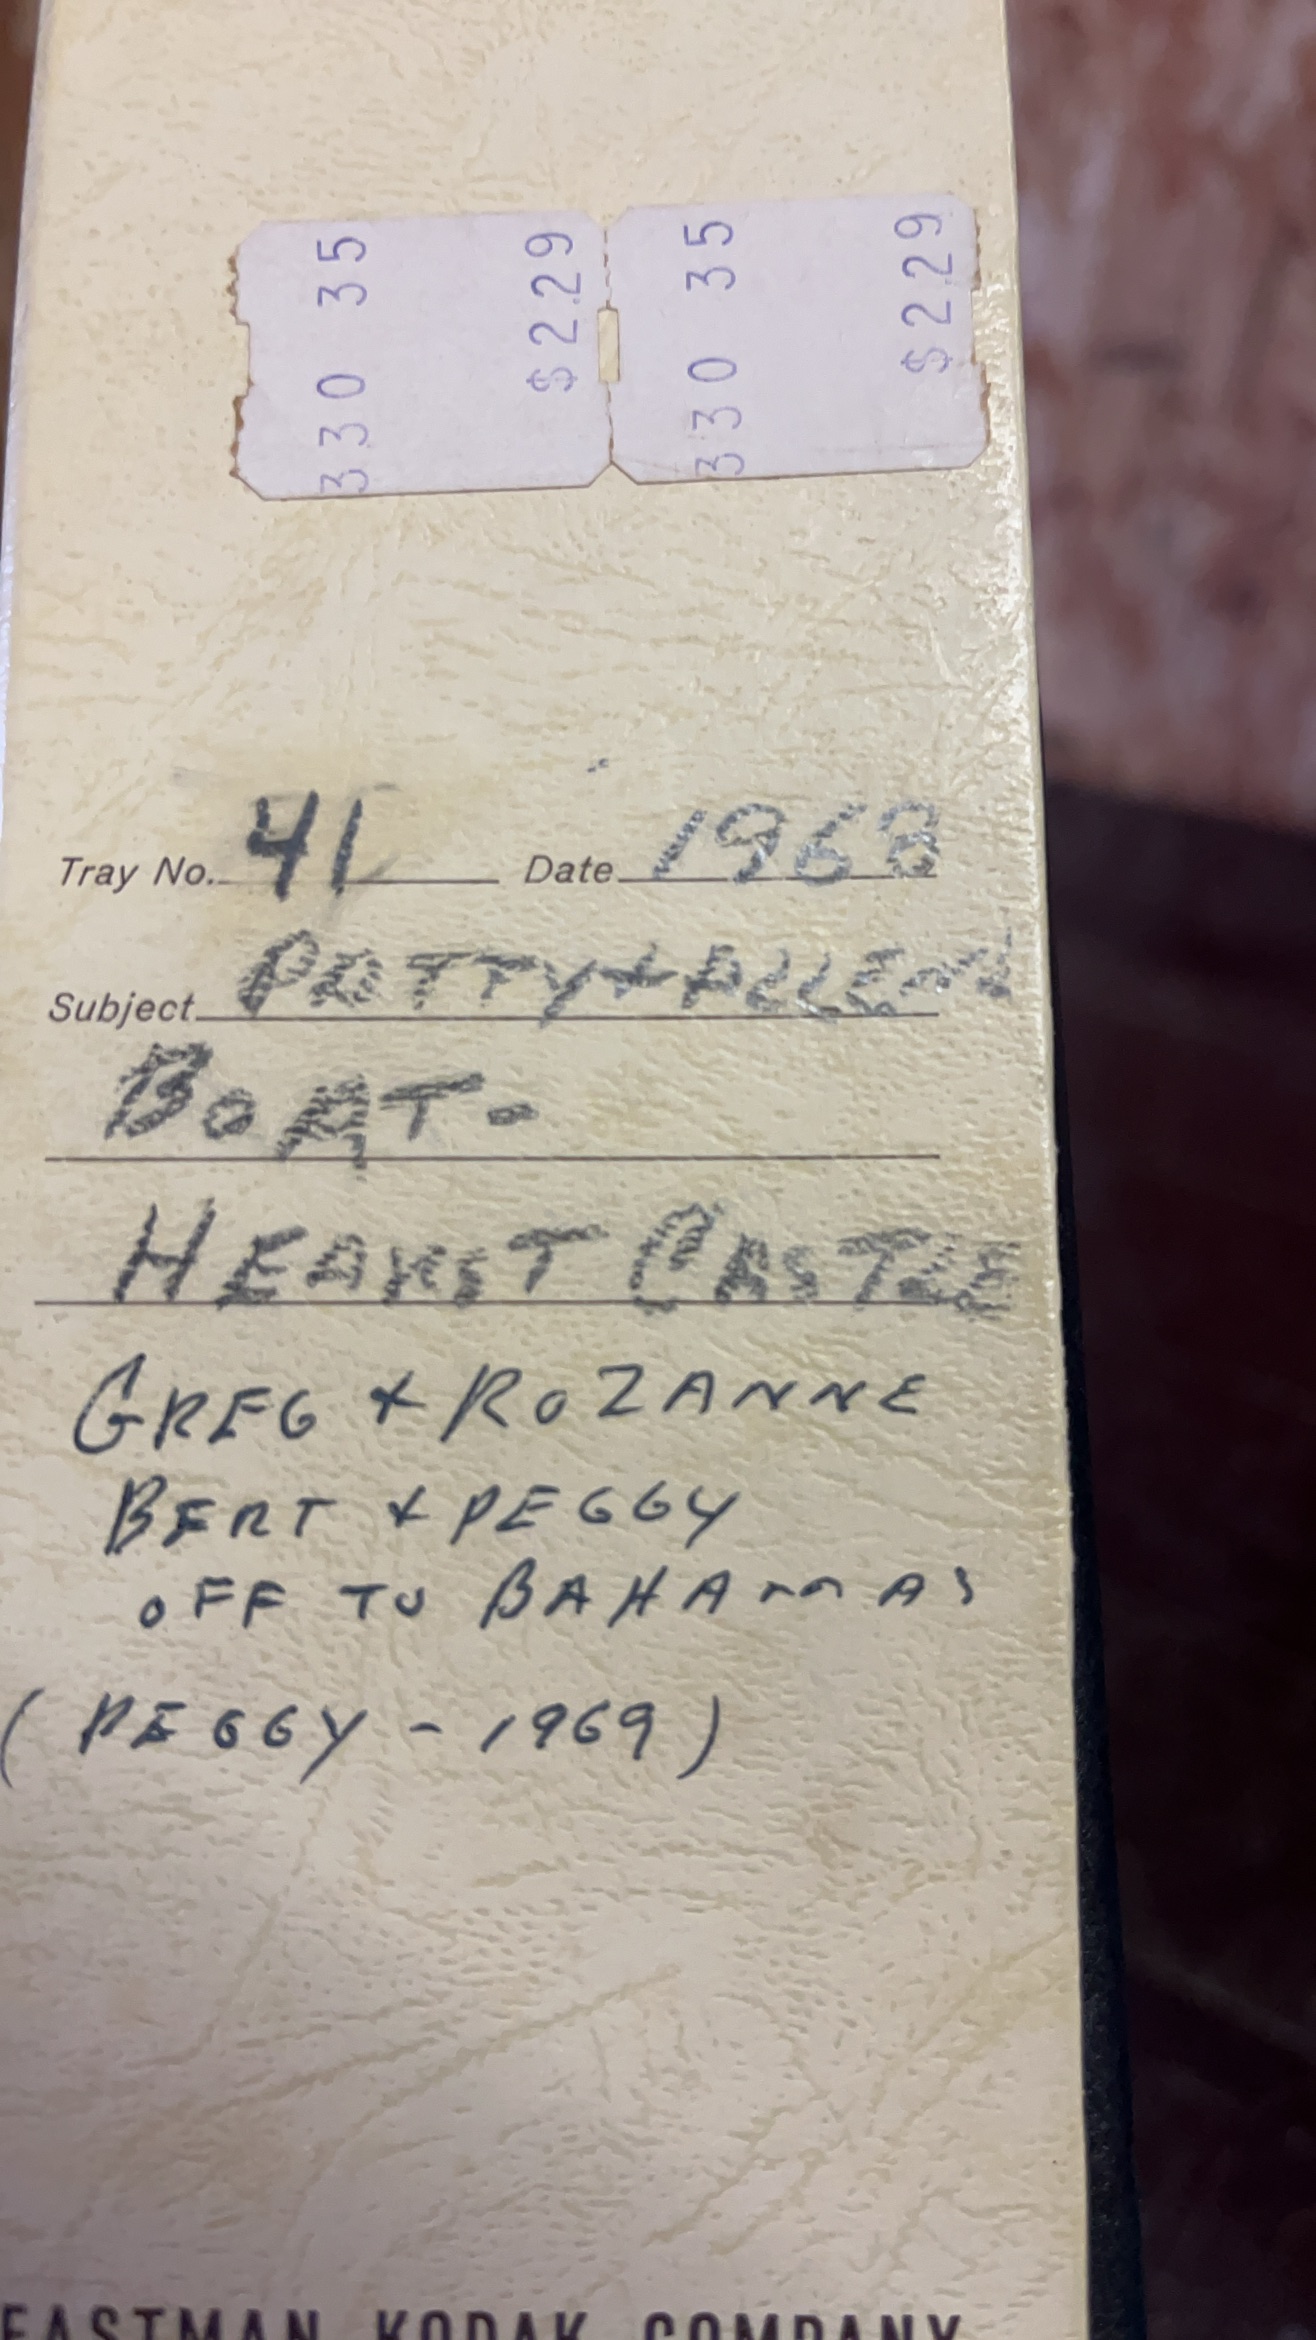 330 35 $2.29
330 35 $2.29
Tray No. 41 Date 1968
Subject PATTY + ALLEN
BOAT -
HEARST CASTLE
GREG + ROZANNE
BERT + PEGGY
OFF TO BAHAMAS
(PEGGY - 1969)
EASTMAN KODAK COMPANY